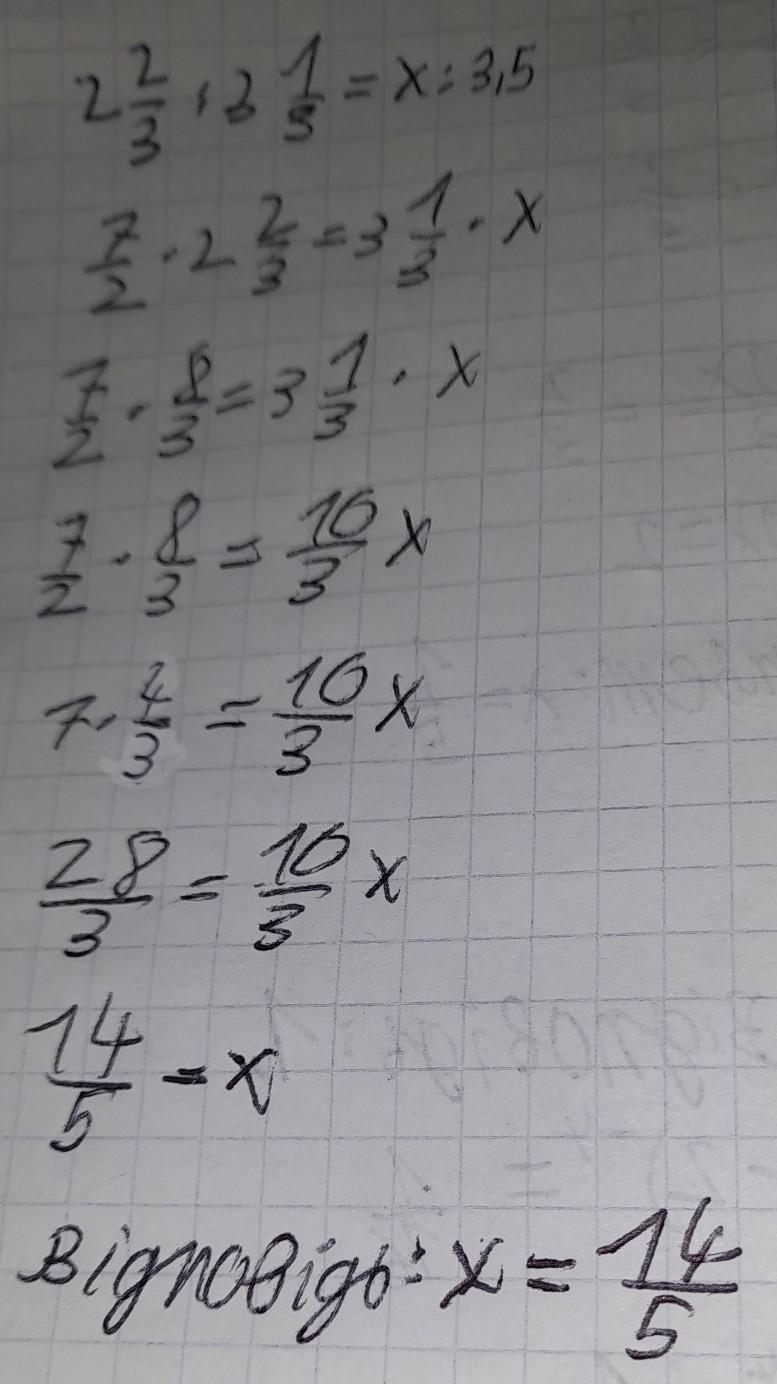 2 2/3 : 3 1/3 = x : 3,5
7/2 · 2 2/3 = 3 1/3 · x
7/2 · 8/3 = 3 1/3 · x
7/2 · 8/3 = 10/3 x
7 · 4/3 = 10/3 x
28/3 = 10/3 x
14/5 = x
Відповідь: x = 14/5